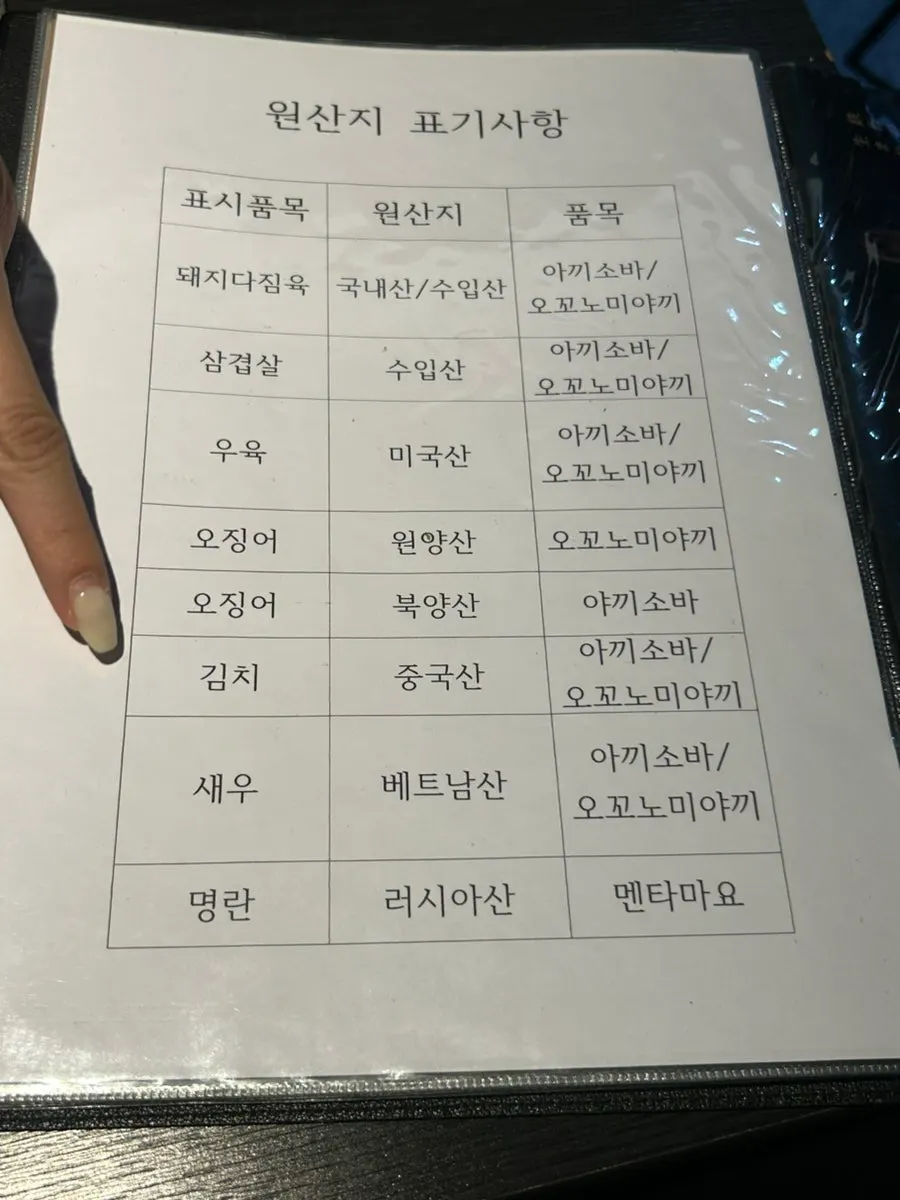 원산지 표기사항
표시품목 원산지 품목
돼지다짐육 국내산/수입산 아끼소바/
오꼬노미야끼
삼겹살 수입산 아끼소바/
오꼬노미야끼
우육 미국산 아끼소바/
오꼬노미야끼
오징어 원양산 오꼬노미야끼
오징어 북양산 야끼소바
김치 중국산 아끼소바/
오꼬노미야끼
새우 베트남산 아끼소바/
오꼬노미야끼
명란 러시아산 멘타마요